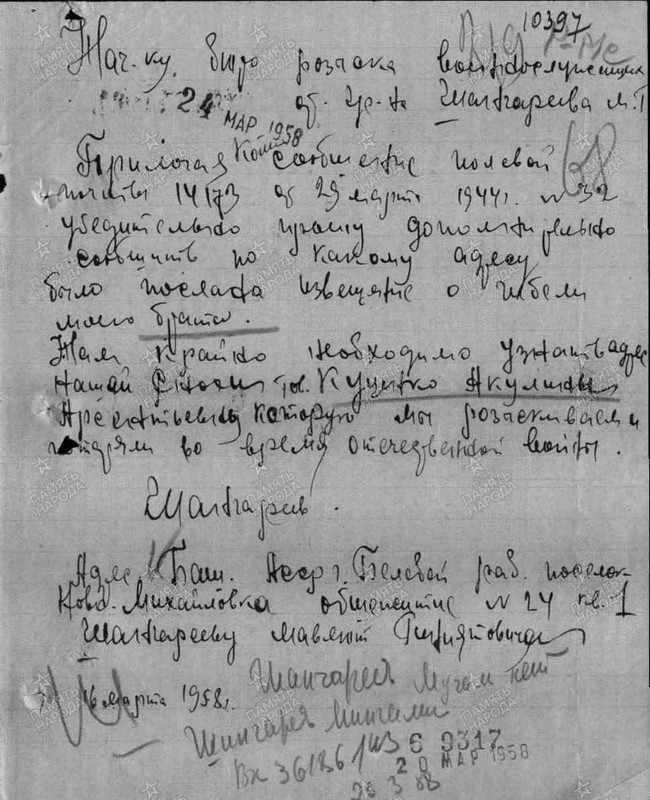 10397
Нач-ку бюро розыска военнослужащих
24 МАР 1958
от гр-на Шангареева М.Г.
Прилагая копию сообщение полевой
почты 14173 от 29 марта 1944 г. № 32
убедительно прошу дополнительно
сообщить по какому адресу
было послана извещение о гибели
моего брата.
Нам крайно необходимо узнать адрес
нашей тов. Куценко Акулины
Арсентьевны которую мы розыскиваем и
потеряли во время отечественной войны.
Шангареев.
Адрес Баш. Асср г. Белебей раб. поселок
Ново-Михайловка общежитие № 24 кв. 1
Шангарееву Мавлют
16 марта 1958 г.
Шангареев
Шангареев
Вх 36186 6 9317
20 МАР 1958
26 3 58
ПАМЯТЬ НАРОДА